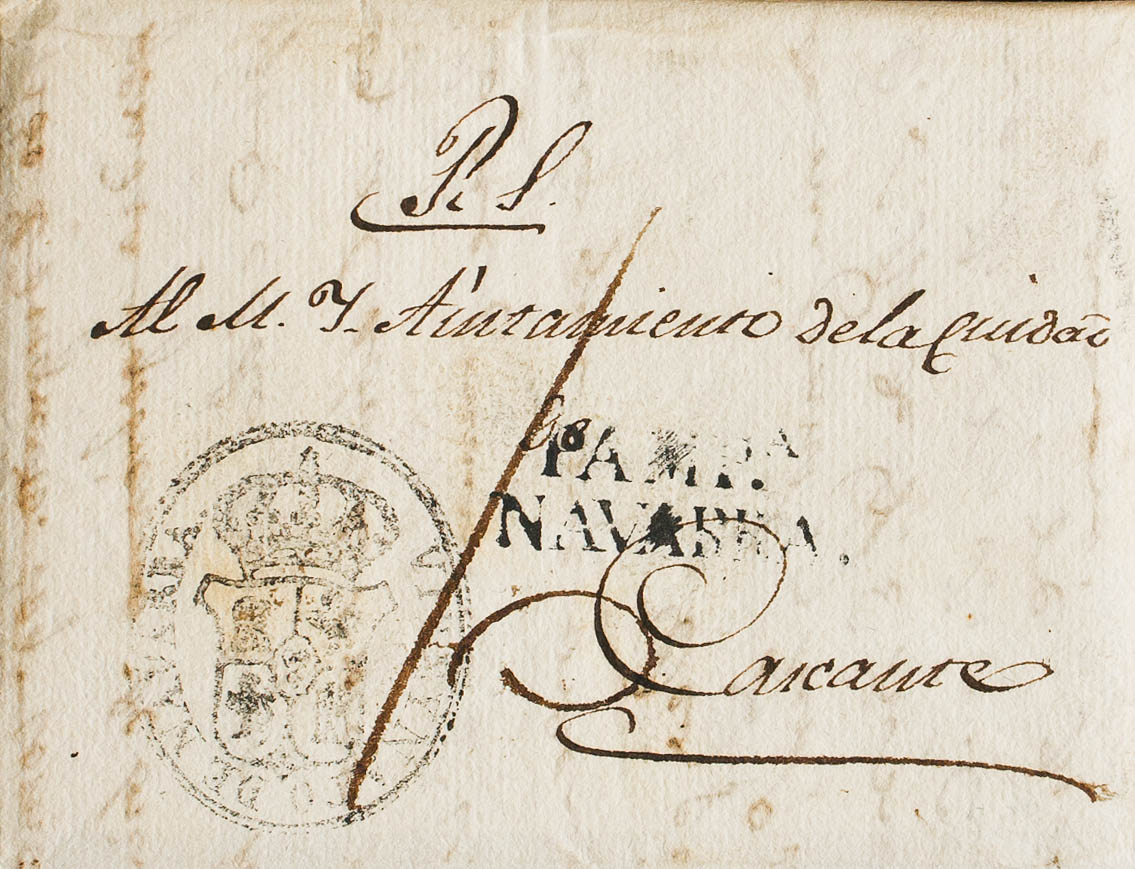 R S.
Al M. Y. Aiuntamiento de la Ciudad
PAMP.NA
NAVARRA.
Cascante
DE NAVARRA